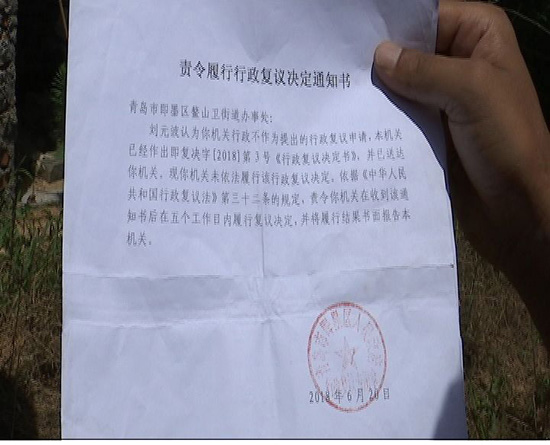 责令履行行政复议决定通知书
青岛市即墨区鳌山卫街道办事处:
刘元波认为你机关行政不作为提出的行政复议申请,本机关
已经作出即复决字[2018]第3号《行政复议决定书》,并已送达
你机关。现你机关未依法履行该行政复议决定。依据《中华人民
共和国行政复议法》第三十二条的规定,责令你机关在收到该通
知书后在五个工作日内履行复议决定,并将履行结果书面报告本
机关。
2018年6月20日